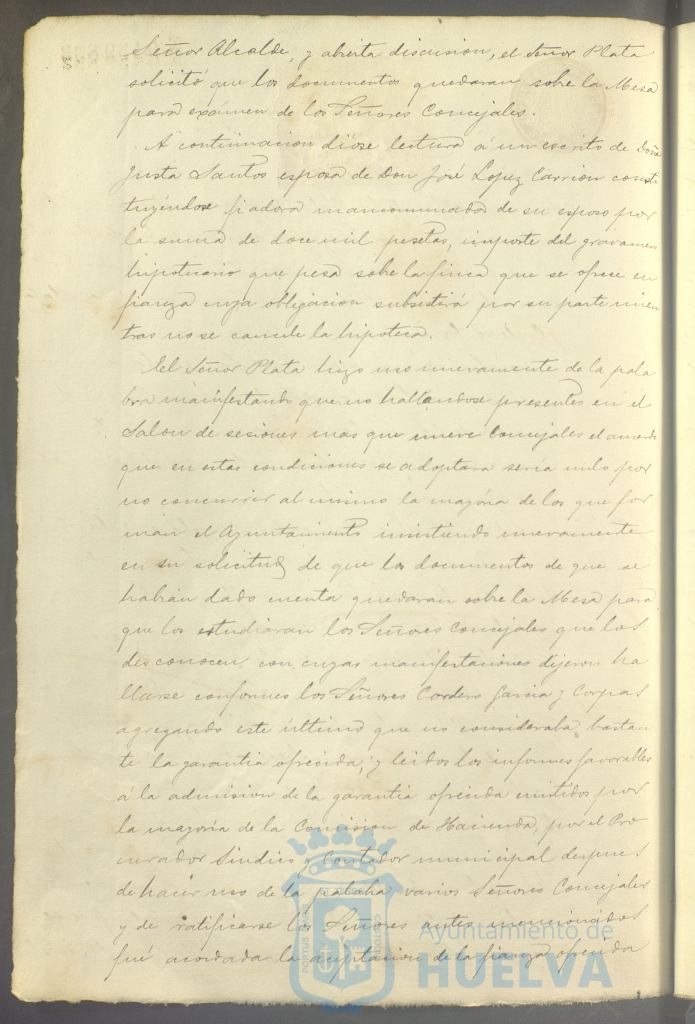 Señor Alcalde, y abierta discusion, el Señor Plata
solicitó que los documentos quedaran sobre la Mesa
para exámen de los Señores Concejales.
A continuacion dióse lectura á un escrito de Doña
Justa Santos esposa de Don José Lopez Carrion consti
tuyéndose fiadora mancomunada de su esposo por
la suma de doce mil pesetas, importe del gravamen
hipotecario que pesa sobre la finca que se ofrece en
fianza cuya obligacion subsistirá por su parte mien
tras no se cancele la hipoteca.
El Señor Plata hizo uso nuevamente de la pala
bra manifestando que no hallandose presentes en el
Salon de sesiones mas que nueve Concejales el acuerdo
que en estas condiciones se adoptara sería nulo por
no concurrir al mismo la mayoría de los que for
man el Ayuntamiento insistiendo nuevamente
en su solicitud de que los documentos de que se
habían dado cuenta quedaran sobre la Mesa para
que los estudiaran los Señores Concejales que los
desconocen, con cuyas manifestaciones dijeron ha
llarse conformes los Señores Cordero Garcia y Corpas
agregando este último que no consideraba bastan
te la garantia ofrecida; y leidos los informes favorables
á la admision de la garantia ofrecida emitidos por
la mayoría de la Comision de Hacienda, por el Pro
curador Síndico y Contador municipal despues
de hacer uso de la palabra varios Señores Concejales
y de ratificarse los Señores antes mencionados
fué acordada la aceptacion de la fianza ofrecida
PORTUS MARIS
CUSTODIA
Ayuntamiento de
HUELVA